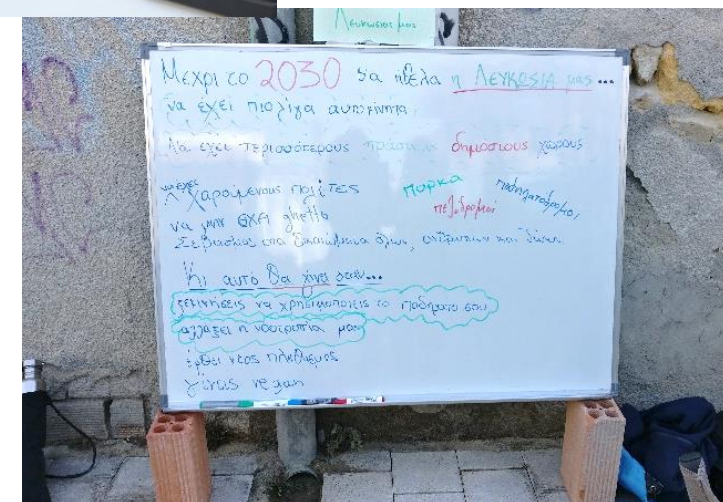 Λευκωσίας μας
Μεχρι το 2030 θα ηθελα η ΛΕΥΚΩΣΙΑ μας ...
να έχει πιο λίγα αυτοκίνητα
Να έχει περισσότερους πράσινους δημοσιους χώρους
να έχει χαρούμενους πολίτες πάρκα πεζοδρομοι ποδηλατοδρομοι
να μην έχει ghetto
Σεβασμός στα δικαιώματα όλων, ανθρώπων και ζώων
Κι αυτό θα γίνει οταν...
ξεκινήσεις να χρησιμοποιείς το ποδηλατο σου
αλλάξει η νοοτροπία μας
έρθει νέος πληθυσμός
γίνεις vegan